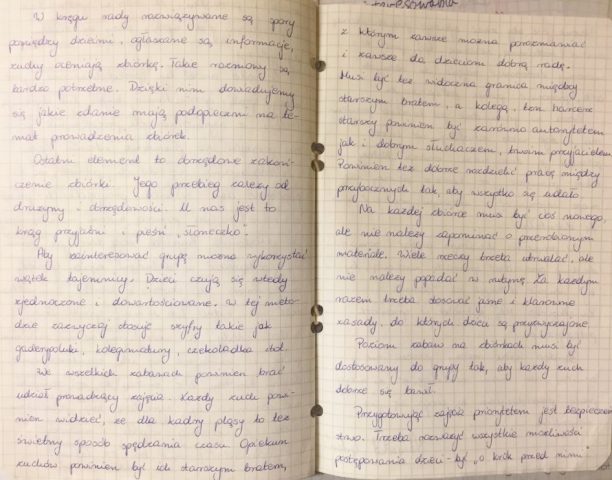 W kręgu rady rozwiązywane są spory
pomiędzy dziećmi, ogłaszane są informacje,
zuchy oceniają zbiórkę. Takie rozmowy są
bardzo potrzebne. Dzięki nim dowiadujemy
się jakie zdanie mają podopieczni na te-
mat prowadzenia zbiórek.
Ostatni element to obrzędowe zakoń-
czenie zbiórki. Jego przebieg zależy od
drużyny i obrzędowości. U nas jest to
krąg przyjaźni i pieśń "słoneczko".
Aby zainteresować grupę można wykorzystać
wątek tajemnicy. Dzieci czują się wtedy
zjednoczone i dowartościowane. W tej meto-
dzie zazwyczaj stosuję szyfry takie jak
gaderypoluki, czekoladka itd.
We wszelkich zabawach powinien brać
udział prowadzący zajęcia. Każdy zuch powi-
nien widzieć, że dla kadry pląsy to też
świetny sposób spędzania czasu. Opiekun
zuchów powinien być ich starszym bratem,
z którym zawsze można porozmawiać
i zawsze da dzieciom dobrą radę.
Musi być też widoczna granica między
starszym bratem, a kolegą, ten harcerz
starszy powinien być zarówno autorytetem
jak i dobrym słuchaczem, przyjacielem.
Powinien też dobrze rozdzielić pracę między
przybocznych tak, aby wszystko się udało.
Na każdej zbiórce musi być coś nowego,
ale nie należy zapominać o przerobionym
materiale. Wiele rzeczy trzeba utrwalać, ale
nie należy popadać w rutynę. Za każdym
razem trzeba stosować jasne i klarowne
zasady, do których dzieci są przyzwyczajone.
Poziom zabaw na zbiórkach musi być
dostosowany do grupy tak, aby każdy zuch
dobrze się bawił.
Przygotowując zajęcia priorytetem jest bezpieczeń-
stwo. Trzeba rozważyć wszystkie możliwości
postępowania dzieci - być "o krok przed nimi".